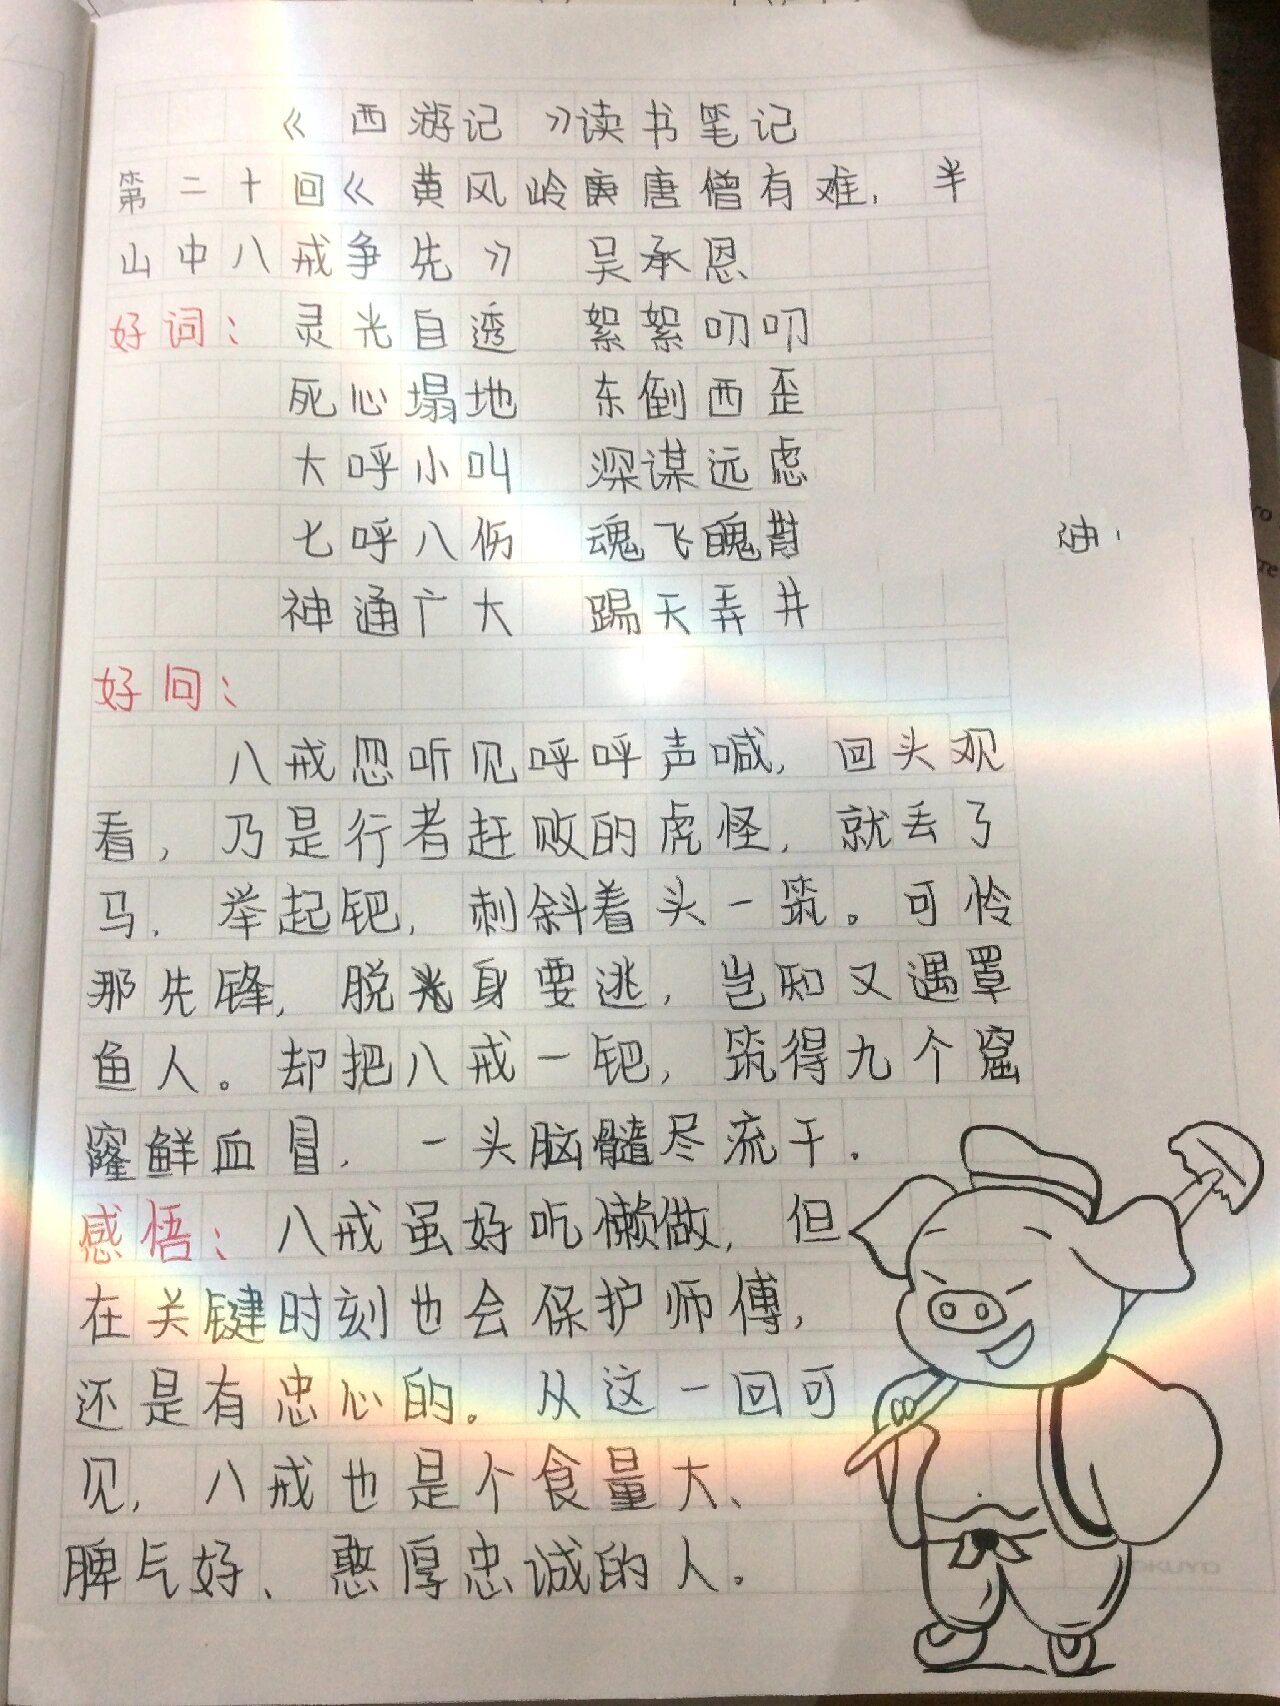 《西游记》读书笔记
第二十回《黄风岭唐僧有难，半
山中八戒争先》 吴承恩
好词：灵光自透 絮絮叨叨
死心塌地 东倒西歪
大呼小叫 深谋远虑
七呼八伤 魂飞魄散
神通广大 踢天弄井
好问：
八戒忽听见呼呼声喊，回头观
看，乃是行者赶败的虎怪，就丢了
马，举起钯，刺斜着头一筑。可怜
那先锋，脱光身要逃，岂知又遇罩
鱼人。却把八戒一钯，筑得九个窟
窿鲜血冒，一头脑髓尽流干。
感悟：八戒虽好吃懒做，但
在关键时刻也会保护师傅，
还是有忠心的。从这一回可
见，八戒也是个食量大、
脾气好、憨厚忠诚的人。
KOKUYO